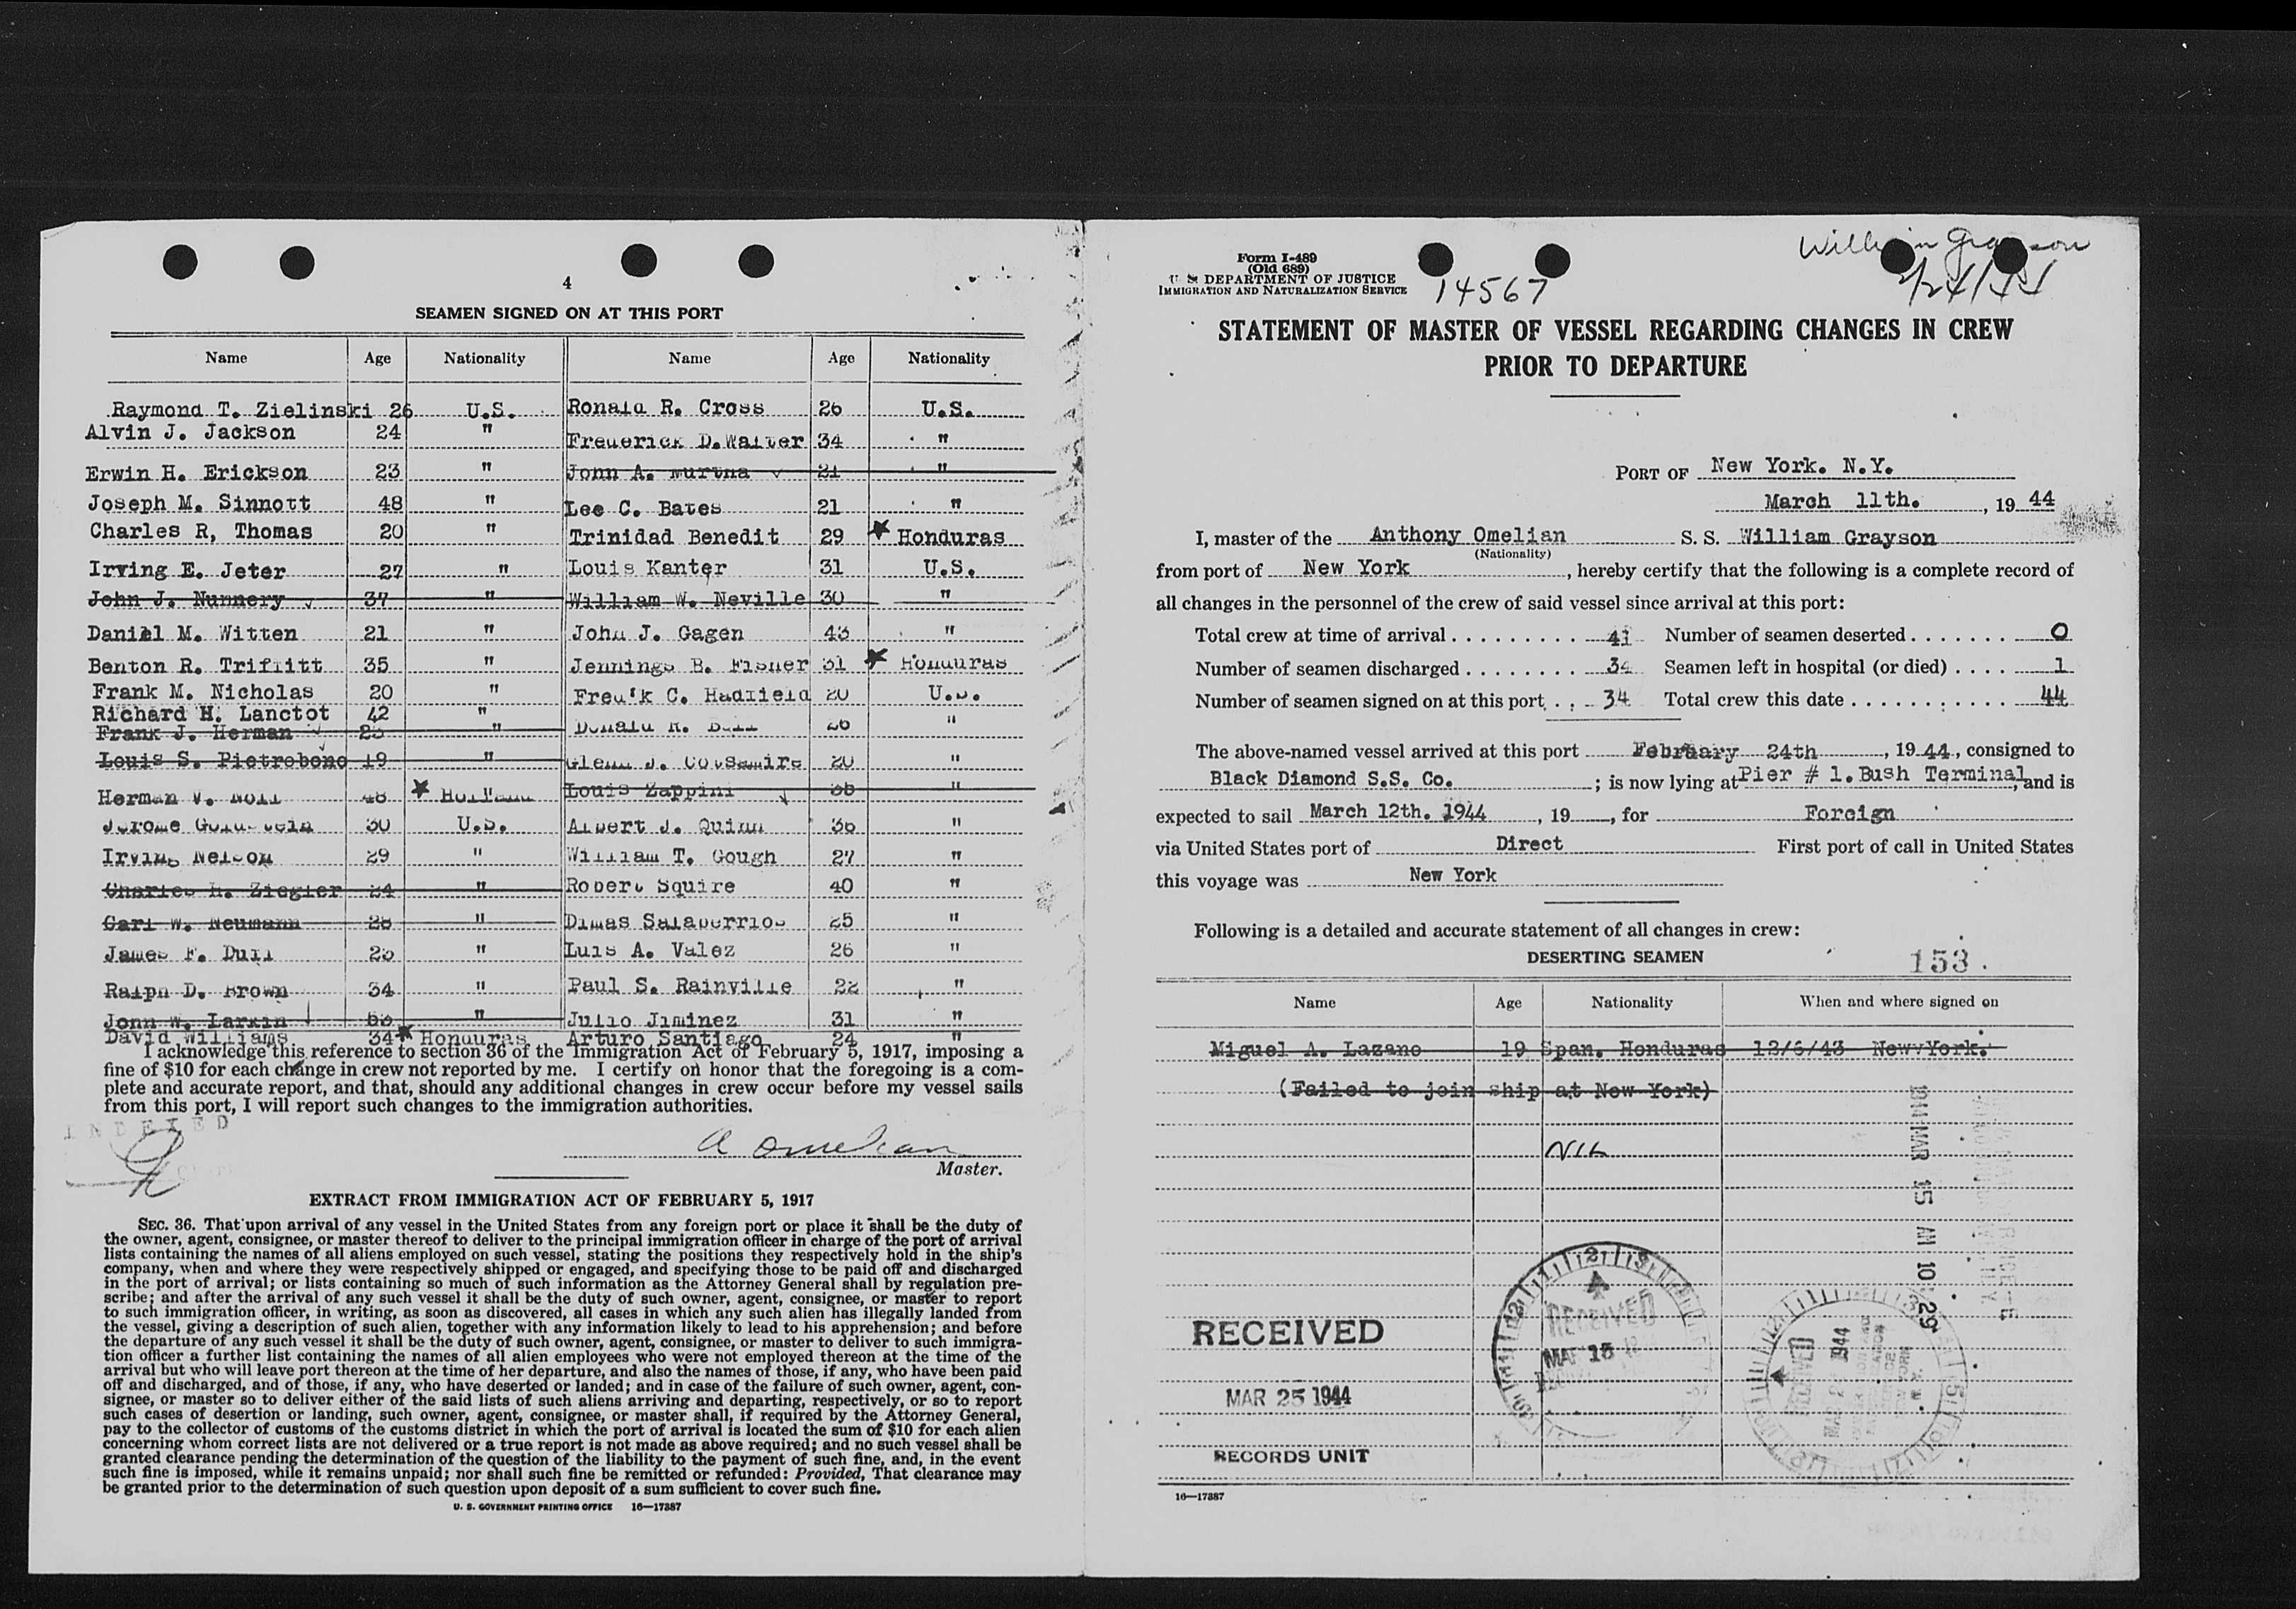 4
SEAMEN SIGNED ON AT THIS PORT
Name Age Nationality Name Age Nationality
Raymond T. Zielinski 26 U.S. Ronald R. Cross 26 U.S.
Alvin J. Jackson 24 " Frederick D. Walter 34 "
Erwin H. Erickson 23 " John A. Murtha 21 "
Joseph M. Sinnott 48 " Lee C. Bates 21 "
Charles R, Thomas 20 " Trinidad Benedit 29 Honduras
Irving E. Jeter 27 " Louis Kanter 31 U.S.
John J. Nunnery 37 " William W. Neville 30 "
Daniel M. Witten 21 " John J. Gagen 43 "
Benton R. Triflitt 35 " Jennings B. Fisher 31 Honduras
Frank M. Nicholas 20 " Fred'k C. Hadfield 20 U.S.
Richard H. Lanctot 42 " Donald R. 26 "
Frank J. Herman "
Louis S. Pietrobono 19 " Glenn J. 20 "
Herman V. Noll 48 Holland Louis Zappini "
Jerome Goldstein 30 U.S. Albert J. Quinn 36 "
Irving Nelson 29 " William T. Gough 27 "
Charles H. Ziegler 24 " Robert Squire 40 "
Carl W. Neumann 28 " Dimas Salaberrios 25 "
James F. Dull " Luis A. Valez 26 "
Ralph D. Brown 34 " Paul S. Rainville 22 "
John W. Larkin " Julio Jiminez 31 "
David Williams 34 Honduras Arturo Santiago 24 "
I acknowledge this reference to section 36 of the Immigration Act of February 5, 1917, imposing a
fine of $10 for each change in crew not reported by me. I certify on honor that the foregoing is a com-
plete and accurate report, and that, should any additional changes in crew occur before my vessel sails
from this port, I will report such changes to the immigration authorities.
INDEXED
A Omelian
Master.
EXTRACT FROM IMMIGRATION ACT OF FEBRUARY 5, 1917
SEC. 36. That upon arrival of any vessel in the United States from any foreign port or place it shall be the duty of
the owner, agent, consignee, or master thereof to deliver to the principal immigration officer in charge of the port of arrival
lists containing the names of all aliens employed on such vessel, stating the positions they respectively hold in the ship's
company, when and where they were respectively shipped or engaged, and specifying those to be paid off and discharged
in the port of arrival; or lists containing so much of such information as the Attorney General shall by regulation pre-
scribe; and after the arrival of any such vessel it shall be the duty of such owner, agent, consignee, or master to report
to such immigration officer, in writing, as soon as discovered, all cases in which any such alien has illegally landed from
the vessel, giving a description of such alien, together with any information likely to lead to his apprehension; and before
the departure of any such vessel it shall be the duty of such owner, agent, consignee, or master to deliver to such immigra-
tion officer a further list containing the names of all alien employees who were not employed thereon at the time of the
arrival but who will leave port thereon at the time of her departure, and also the names of those, if any, who have been paid
off and discharged, and of those, if any, who have deserted or landed; and in case of the failure of such owner, agent, con-
signee, or master so to deliver either of the said lists of such aliens arriving and departing, respectively, or so to report
such cases of desertion or landing, such owner, agent, consignee, or master shall, if required by the Attorney General,
pay to the collector of customs of the customs district in which the port of arrival is located the sum of $10 for each alien
concerning whom correct lists are not delivered or a true report is not made as above required; and no such vessel shall be
granted clearance pending the determination of the question of the liability to the payment of such fine, and, in the event
such fine is imposed, while it remains unpaid; nor shall such fine be remitted or refunded: Provided, That clearance may
be granted prior to the determination of such question upon deposit of a sum sufficient to cover such fine.
U. S. GOVERNMENT PRINTING OFFICE 16—17387
Form I-489
(Old 689)
U. S. DEPARTMENT OF JUSTICE
IMMIGRATION AND NATURALIZATION SERVICE
14567
William Grayson
2/24/44
STATEMENT OF MASTER OF VESSEL REGARDING CHANGES IN CREW
PRIOR TO DEPARTURE
PORT OF New York. N.Y.
March 11th. , 19 44
I, master of the Anthony Omelian S. S. William Grayson
(Nationality)
from port of New York , hereby certify that the following is a complete record of
all changes in the personnel of the crew of said vessel since arrival at this port:
Total crew at time of arrival . . . . . . . . . Number of seamen deserted . . . . . . . 0
Number of seamen discharged . . . . . . . . 34 Seamen left in hospital (or died) . . . . 1
Number of seamen signed on at this port . . . 34 Total crew this date . . . . . . . . . . . . 44
The above-named vessel arrived at this port February 24th , 19 44, consigned to
Black Diamond S.S. Co. ; is now lying at Pier # 1. Bush Terminal, and is
expected to sail March 12th. 1944 , 19 , for Foreign
via United States port of Direct First port of call in United States
this voyage was New York
Following is a detailed and accurate statement of all changes in crew:
DESERTING SEAMEN
153
Name Age Nationality When and where signed on
Miguel A. Lazano 19 Span. Honduras 12/6/43 New York.
(Failed to join ship at New York)
NIL
1944 MAR 15 AM 10 29
RECEIVED
MAR 25 1944
RECORDS UNIT
RECEIVED
MAR 15
RECEIVED
1944
16—17387